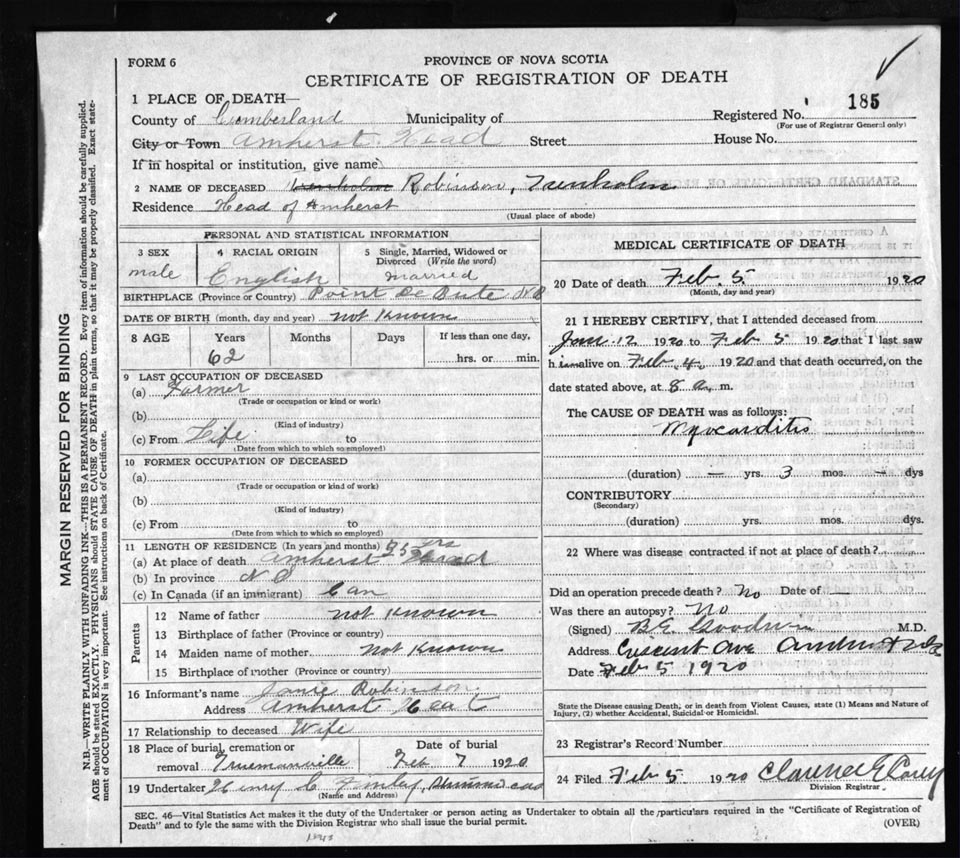 FORM 6
PROVINCE OF NOVA SCOTIA
CERTIFICATE OF REGISTRATION OF DEATH
1 PLACE OF DEATH—
County of Cumberland Municipality of
Registered No. 185
(For use of Registrar General only)
City or Town Amherst Head Street
House No.
If in hospital or institution, give name
2 NAME OF DECEASED Trenholm Robinson, Trenholm
Residence Head of Amherst
(Usual place of abode)
PERSONAL AND STATISTICAL INFORMATION
3 SEX male
4 RACIAL ORIGIN English
5 Single, Married, Widowed or Divorced (Write the word) married
BIRTHPLACE (Province or Country) Point De Bute N B
DATE OF BIRTH (month, day and year) not Known
8 AGE Years 62 Months Days If less than one day, hrs. or min.
9 LAST OCCUPATION OF DECEASED
(a) Farmer
(Trade or occupation or kind or work)
(b)
(Kind of industry)
(c) From Life to
(Date from which to which so employed)
10 FORMER OCCUPATION OF DECEASED
(a)
(Trade or occupation or kind of work)
(b)
(Kind of industry)
(c) From to
(Date from which to which so employed)
11 LENGTH OF RESIDENCE (In years and months) yrs
(a) At place of death Amherst Head
(b) In province N S
(c) In Canada (if an immigrant) Can
Parents
12 Name of father not Known
13 Birthplace of father (Province or country)
14 Maiden name of mother Not Known
15 Birthplace of mother (Province or country)
16 Informant's name Janie Robinson
Address Amherst Head
17 Relationship to deceased Wife
18 Place of burial, cremation or removal Truemanville
Date of burial Feb 7 1920
19 Undertaker Henry C Finley,
(Name and Address)
MEDICAL CERTIFICATE OF DEATH
20 Date of death Feb. 5 1920
(Month, day and year)
21 I HEREBY CERTIFY, that I attended deceased from
Jan. 12 1920 to Feb 5 1920 that I last saw
him alive on Feb. 4. 1920 and that death occurred, on the
date stated above, at 8 a. m.
The CAUSE OF DEATH was as follows:
Myocarditis
(duration) — yrs. 3 mos. — dys
CONTRIBUTORY
(Secondary)
(duration) yrs. mos. dys.
22 Where was disease contracted if not at place of death?
Did an operation precede death? No Date of —
Was there an autopsy? No
(Signed) B.E. Goodwin M.D.
Address Crescent Ave Amherst
Date Feb 5 1920
State the Disease causing Death, or in death from Violent Causes, state (1) Means and Nature of
Injury, (2) whether Accidental, Suicidal or Homicidal.
23 Registrar's Record Number
24 Filed Feb 5 1920
Division Registrar
SEC. 46—Vital Statistics Act makes it the duty of the Undertaker or person acting as Undertaker to obtain all the particulars required in the "Certificate of Registration of
Death" and to fyle the same with the Division Registrar who shall issue the burial permit.
(OVER)
MARGIN RESERVED FOR BINDING
N.B.—WRITE PLAINLY WITH UNFADING INK—THIS IS A PERMANENT RECORD. Every item of information should be carefully supplied.
AGE should be stated EXACTLY. PHYSICIANS should STATE CAUSE OF DEATH in plain terms, so that it may be properly classified. Exact state-
ment of OCCUPATION is very important. See instructions on back of Certificate.